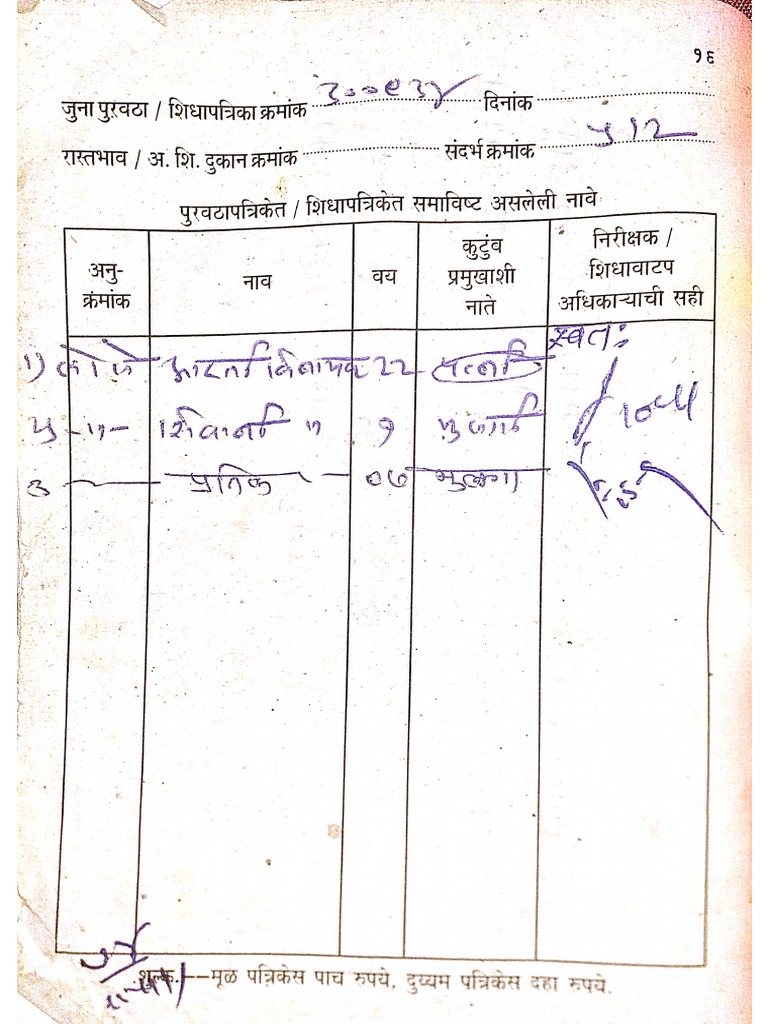 १६
जुना पुरवठा / शिधापत्रिका क्रमांक ३००९३४ दिनांक
रास्तभाव / अ. शि. दुकान क्रमांक संदर्भ क्रमांक ५१२
पुरवठापत्रिकेत / शिधापत्रिकेत समाविष्ट असलेली नावे
अनु-क्रंमांक नाव वय कुटुंब प्रमुखाशी नाते निरीक्षक / शिधावाटप अधिकाऱ्याची सही
स्वतः
१) आरती विनायक २२ पत्नी
-॥- शिवानी ॥ १ मुलगी
३ प्रतिक ०७ मुलगा
शुल्क.—मूळ पत्रिकेस पाच रुपये, दुय्यम पत्रिकेस दहा रुपये.